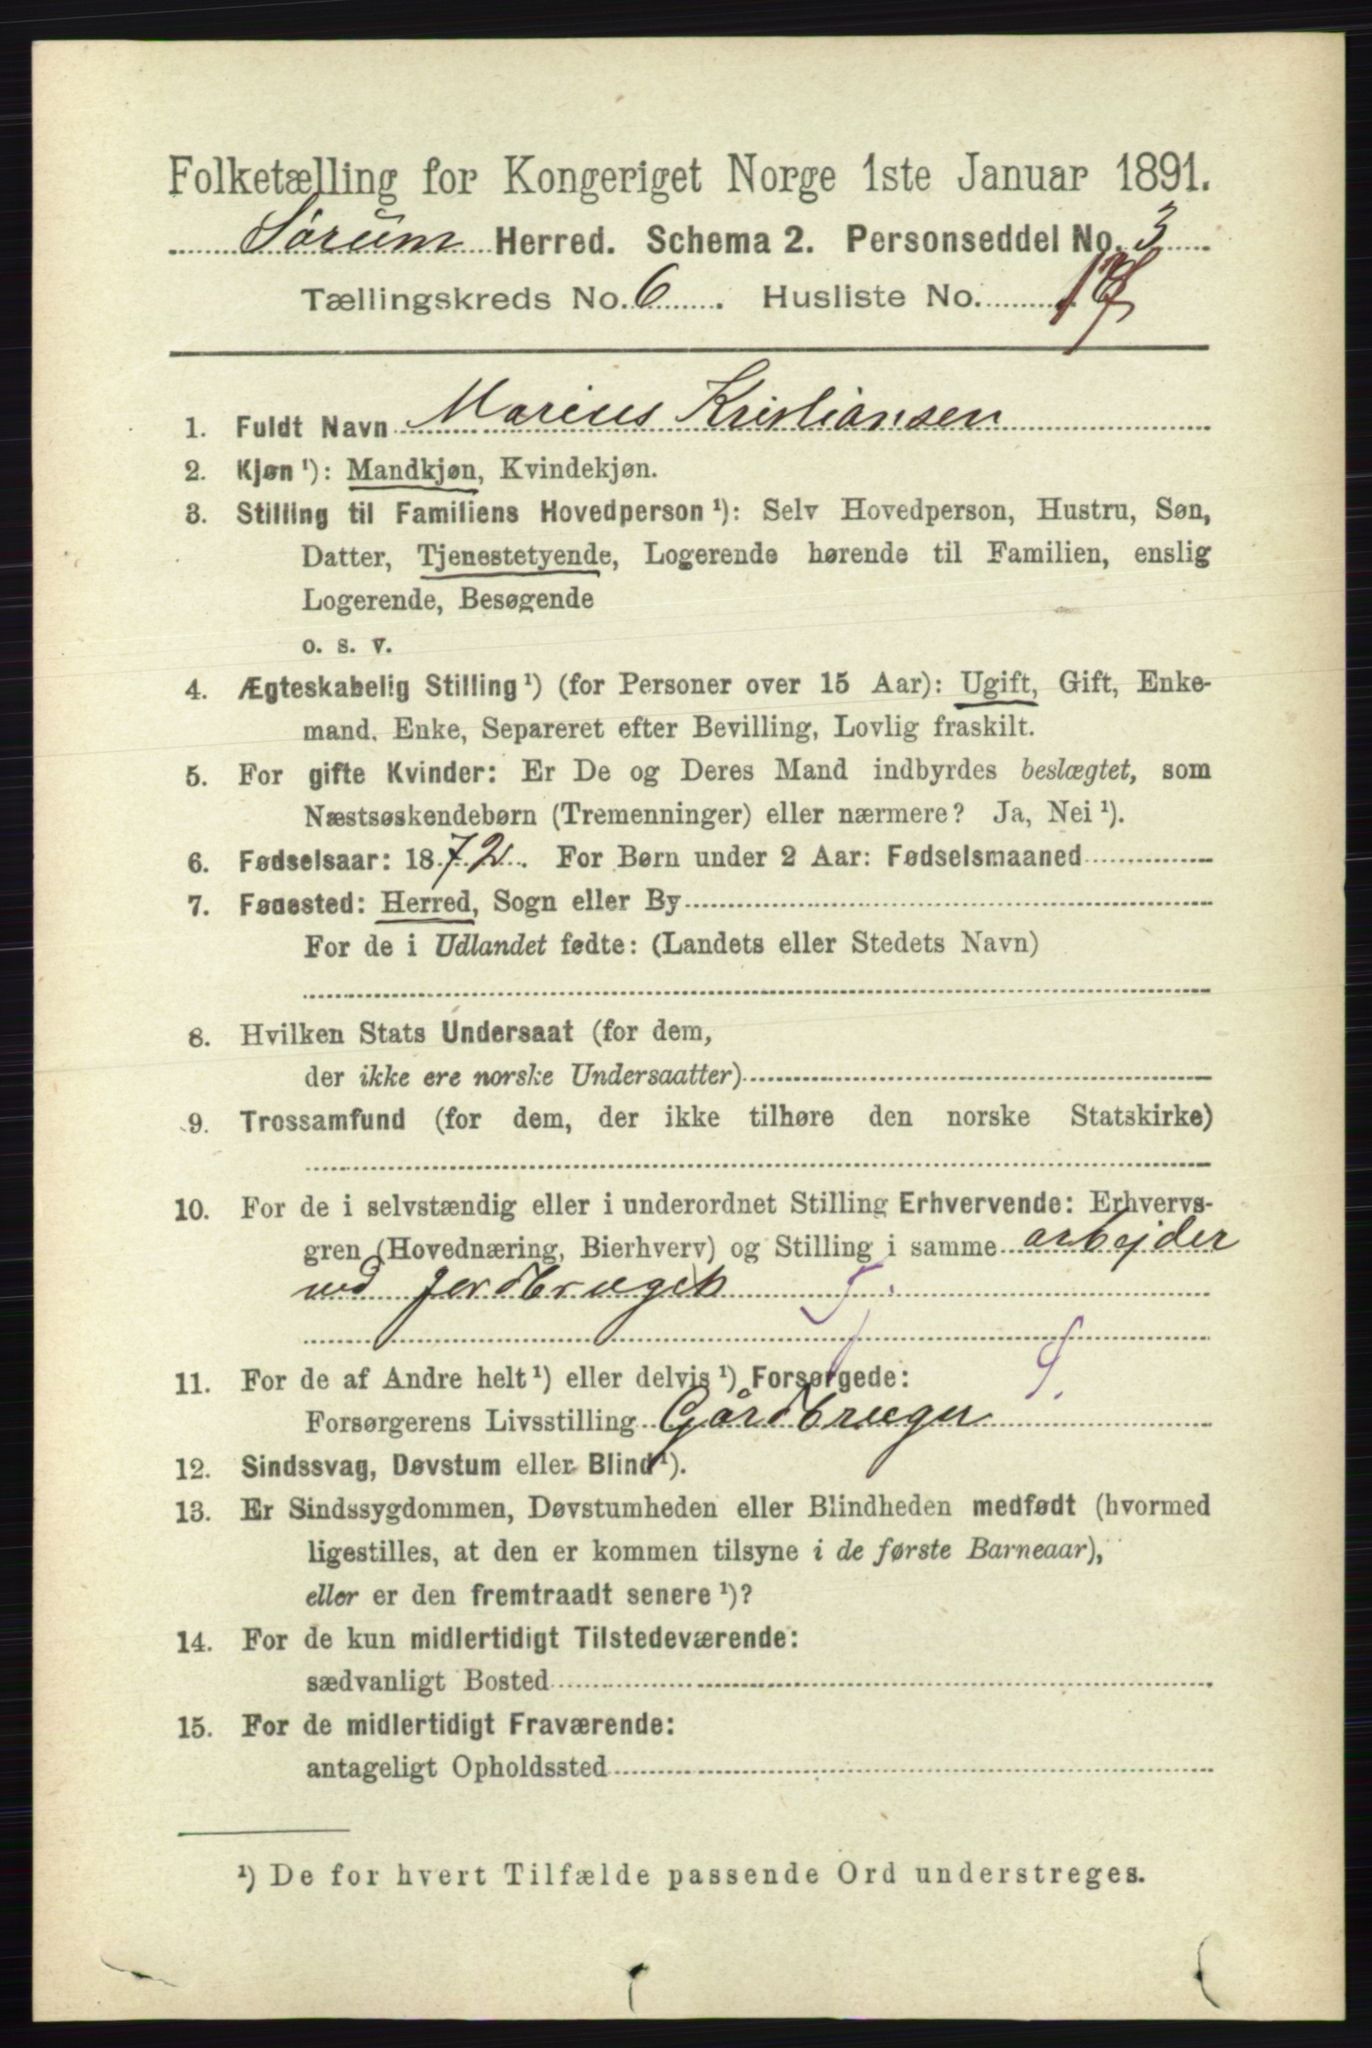 Folketælling for Kongeriget Norge 1ste Januar 1891.
Sørum Herred. Schema 2. Personseddel No. 3
Tællingskreds No. 6. Husliste No.
1. Fuldt Navn Marius Kristiansen
2. Kjøn ¹): Mandkjøn, Kvindekjøn.
3. Stilling til Familiens Hovedperson ¹): Selv Hovedperson, Hustru, Søn,
Datter, Tjenestetyende, Logerende hørende til Familien, enslig
Logerende, Besøgende
o. s. v.
4. Ægteskabelig Stilling ¹) (for Personer over 15 Aar): Ugift, Gift, Enke-
mand, Enke, Separeret efter Bevilling, Lovlig fraskilt.
5. For gifte Kvinder: Er De og Deres Mand indbyrdes beslægtet, som
Næstsøskendebørn (Tremenninger) eller nærmere? Ja, Nei ¹).
6. Fødselsaar: 1872. For Børn under 2 Aar: Fødselsmaaned
7. Fødested: Herred, Sogn eller By
For de i Udlandet fødte: (Landets eller Stedets Navn)
8. Hvilken Stats Undersaat (for dem,
der ikke ere norske Undersaatter)
9. Trossamfund (for dem, der ikke tilhøre den norske Statskirke)
10. For de i selvstændig eller i underordnet Stilling Erhvervende: Erhvervs-
gren (Hovednæring, Bierhverv) og Stilling i samme arbejder
ved Jordbruget
11. For de af Andre helt ¹) eller delvis ¹) Forsørgede:
Forsørgerens Livsstilling Gårdbruger
12. Sindssvag, Døvstum eller Blind ¹).
13. Er Sindssygdommen, Døvstumheden eller Blindheden medfødt (hvormed
ligestilles, at den er kommen tilsyne i de første Barneaar),
eller er den fremtraadt senere ¹)?
14. For de kun midlertidigt Tilstedeværende:
sædvanligt Bosted
15. For de midlertidigt Fraværende:
antageligt Opholdssted
¹) De for hvert Tilfælde passende Ord understreges.